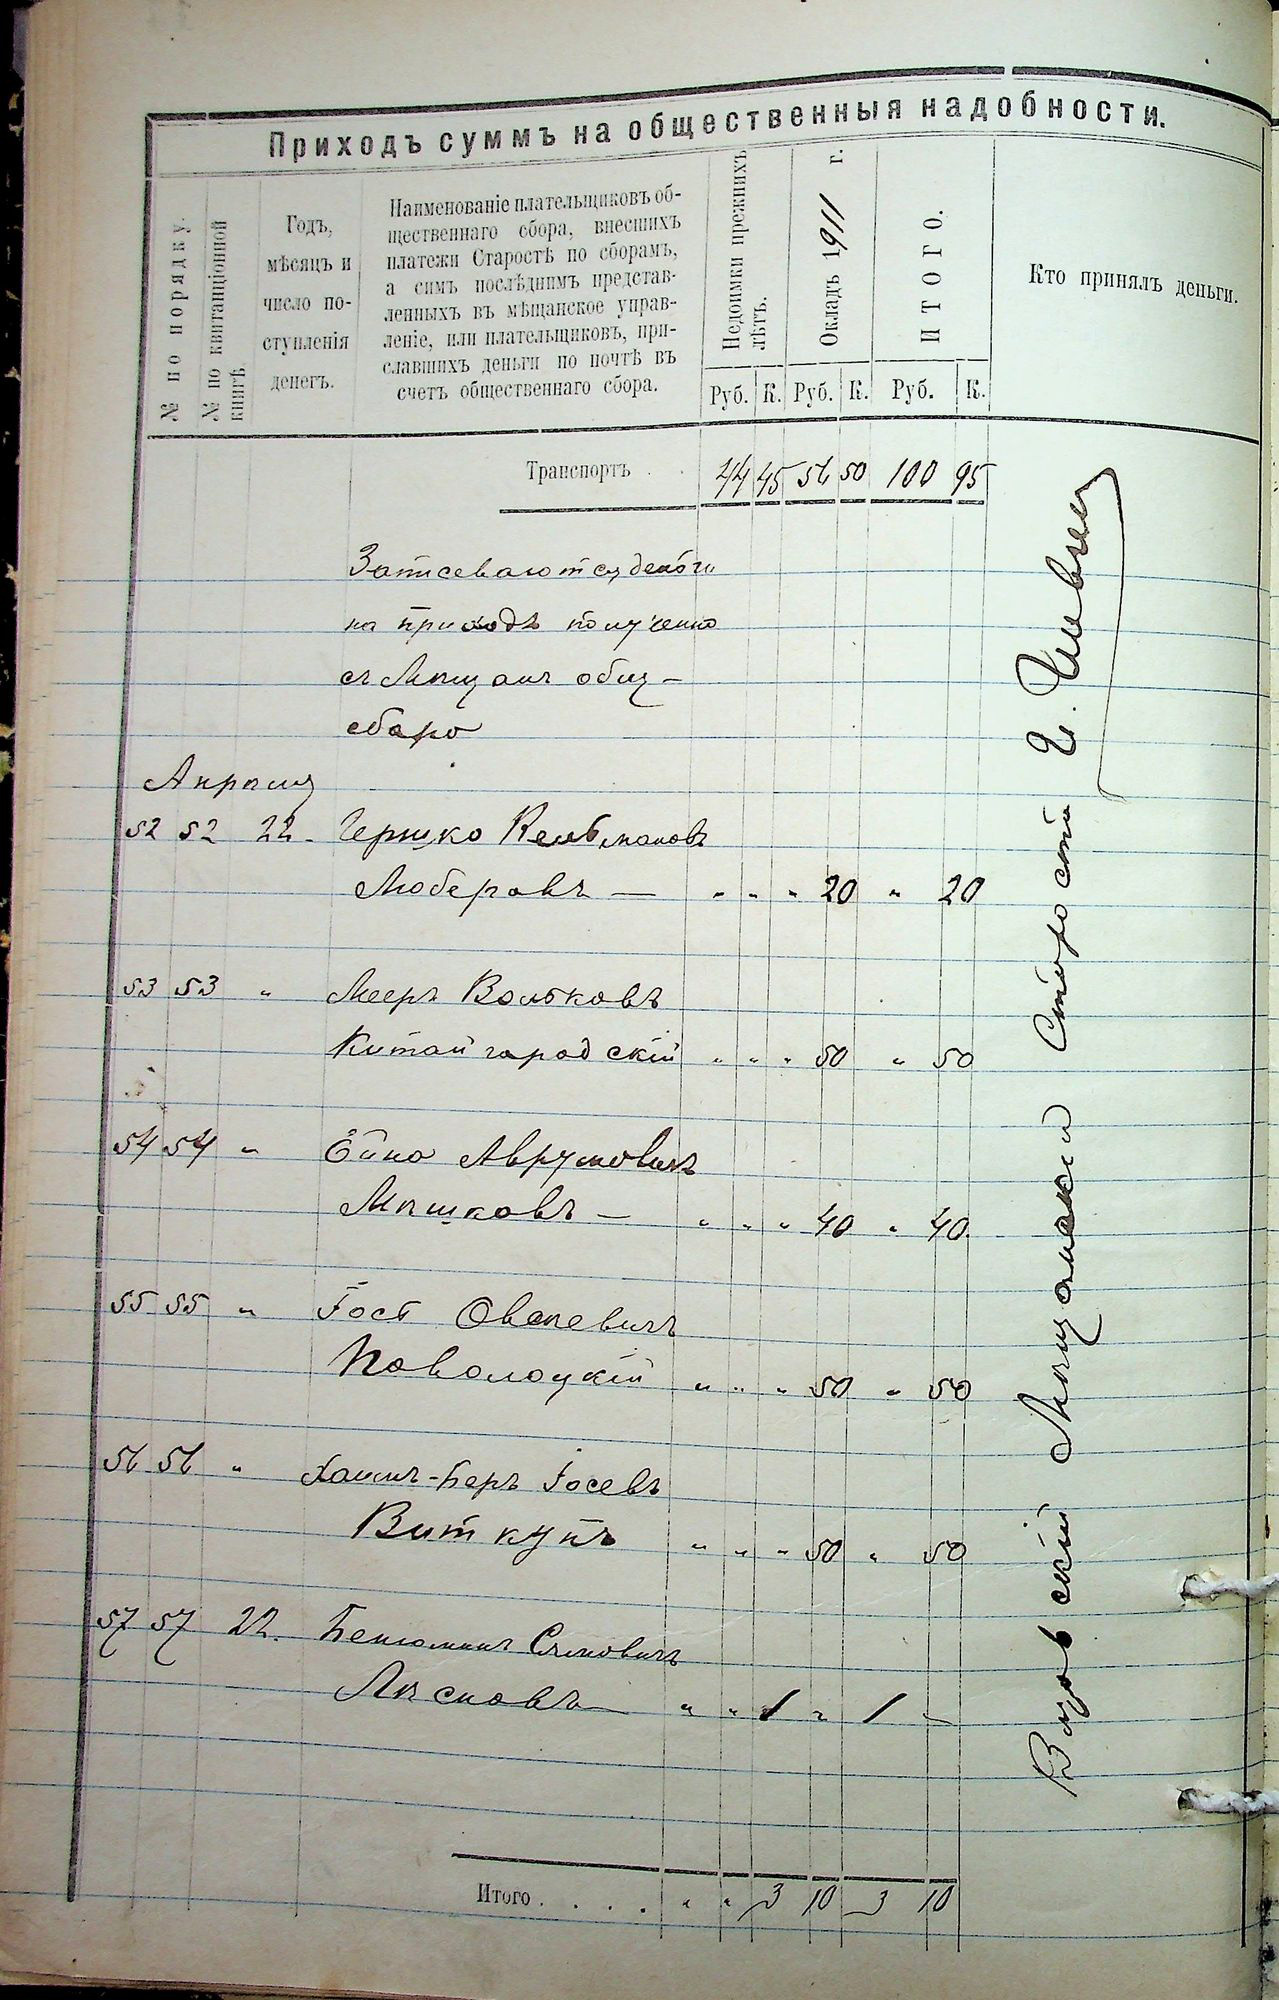 Приходъ суммъ на общественныя надобности.
№ по порядку.
№ по квитанціонной
книгѣ.
Годъ,
мѣсяцъ и
число по-
ступленія
денегъ.
Наименованіе плательщиковъ об-
щественнаго сбора, внесшихъ
платежи Старостѣ по сборамъ,
а симъ послѣднимъ представ-
ленныхъ въ мѣщанское управ-
леніе, или плательщиковъ, при-
славшихъ деньги по почтѣ въ
счетъ общественнаго сбора.
Недоимки прежнихъ
лѣтъ.
Окладъ 1911 г.
ИТОГО.
Кто принялъ деньги.
Руб. К. Руб. К. Руб. К.
Транспортъ . . 44 45 56 50 100 95
Записеваются деньги
на приходъ получено
съ Мѣщанъ общ-
сбаро
Апрѣля
52 52 22. Гершко Кельмановъ
Люберовъ — " " " 20 " 20
53 53 " Мееръ Вольковъ
Китайгородскій " " " 50 " 50
54 54 " Аврумовичъ
Мѣшковъ — " " " 40 " 40.
55 55 " Іось Овсеевичъ
Поволоцкій " " " 50 " 50
56 56 " Хаимъ-Беръ Іосевъ
Виткупъ " " " 50 " 50
57 57 22. Беньоминъ
Лѣсновъ " " 1 " 1 —
Итого . . . . " " 3 10 3 10
Мѣщански Старости И.